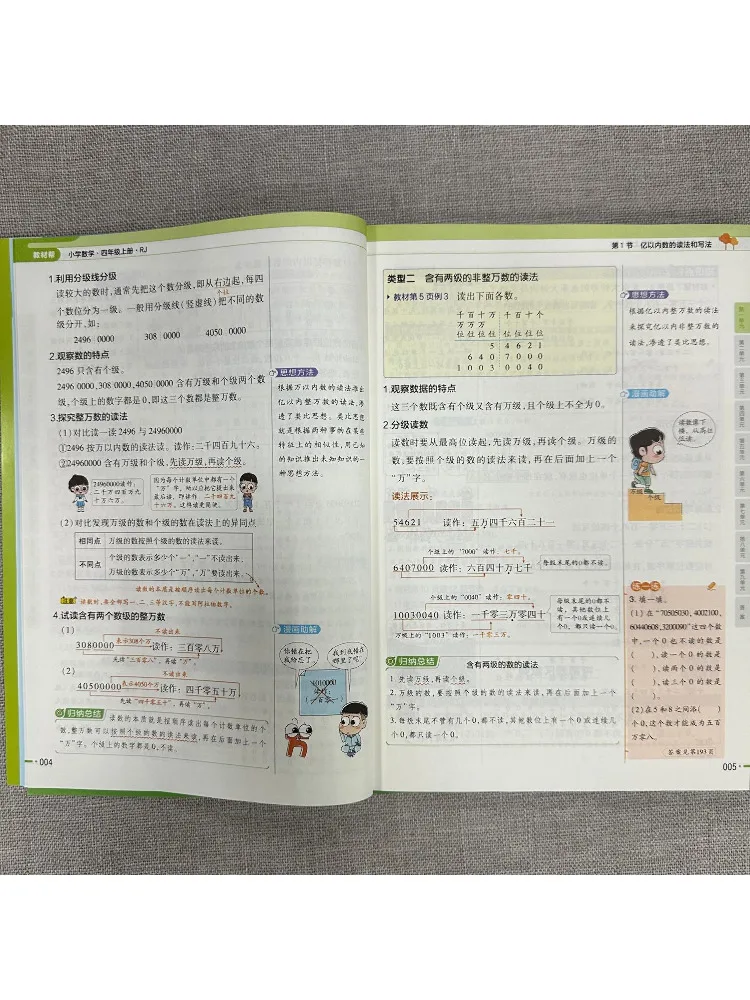 教材帮 小学数学·四年级上册·RJ
1.利用分级线分级
读较大的数时,通常先把这个数分级,即从右边起,每四
个位
个数位分为一级。一般用分级线(竖虚线)把不同的数
级分开,如:
2496 0000 308 0000 4050 0000
2.观察数的特点
2496 只含有个级。
2496 0000,308 0000,4050 0000 含有万级和个级两个数
级,个级上的数字都是 0,即这三个数都是整万数。
3.探究整万数的读法
(1)对比读一读 2496 与 24960000
①2496 按万以内数的读法读。读作:二千四百九十六。
②24960000 含有万级和个级,先读万级,再读个级。
24960000读作:
二千四百九
十六万。
因为每个计数单位中都有一个
“万”字,所以应把它提出来
最后读,即读作 二千四百九
十六万。这样读更简便。
(2)对比发现万级的数和个级的数在读法上的异同点
相同点 万级的数按照个级的数的读法来读。
不同点 个级的数表示多少个“一”,“一”不读出来。
万级的数表示多少个“万”,“万”要读出来。
读数的本质是按顺序读出每个计数单位的个数。
注意 读数时,要全部写一、二、三等汉字,不能写阿拉伯数字。
4.试读含有两个数级的整万数
(1) 不读出来
表示308个万
3080000 读作:三百零八万
先读“三百零八”,再读“万”。
(2) 不读出来
表示4050个万
40500000 读作:四千零五十万
先读“四千零五十”,再读“万”。
归纳总结 读数的本质就是按顺序读出每个计数单位的个
数,整万数可以按照个级的数的读法来读,再在后面加上一个
“万”字。个级上的数字都是 0,不读。
004
思想方法
根据万以内数的读法推出
亿以内整万数的读法,渗
透了类比思想。类比思想
就是根据两种事物在某些
特征上的相似性,用已知
的知识推出未知知识的一
种思想方法。
漫画助解
你躲在把
我给忘了
我到底躲在
哪里了呢?
4010000
读作:
第 1 节 亿以内数的读法和写法
类型二 含有两级的非整万数的读法
教材第 5 页例 3 读出下面各数。
千百十万 千百十个
万万万
位位位位 位位位位
5 4 6 2 1
6 4 0 7 0 0 0
1 0 0 3 0 0 4 0
1.观察数据的特点
这三个数既含有个级又含有万级,且个级上不全为 0。
2.分级读数
读数时要从最高位读起,先读万级,再读个级。万级的
数,要按照个级的数的读法来读,再在后面加上一个
“万”字。
读法展示:
54621 读作:五万四千六百二十一
个级上的“7000”读作:七千。
6407000 读作:六百四十万七千
每级末尾的0都不读。
个级上的“0040”读作:零四十。
10030040 读作:一千零三万零四十
万级上的“1003”读作:一千零三万。
每级末尾的0都不
读,其他数位上
有一个0或连续几
个0,都只读一个0。
归纳总结 含有两级的数的读法
1.先读万级,再读个级。
2.万级的数,要按照个级的数的读法来读,再在后面加上一个
“万”字。
3.每级末尾不管有几个 0,都不读,其他数位上有一个 0 或连续几
个 0,都只读一个 0。
思想方法
根据亿以内整万数的读法
来探究亿以内非整万数的
读法,渗透了类比思想。
漫画助解
读数像下
楼,从高位
读。
万级
个级
练一练
3.填一填。
(1)在“70505030,4002100,
60440608,3200090”这四个数
中,一个 0 也不读的数是
( ),读一个 0 的数是
( ),读两个 0 的数是
( ),读三个 0 的数是
( )。
(2)在 5 和 8 之间添( )
个 0,这个数才能成为五百
万零八。
答案见第193页
005
第二单元
第三单元
第四单元
第五单元
第六单元
第七单元
第八单元
第九单元